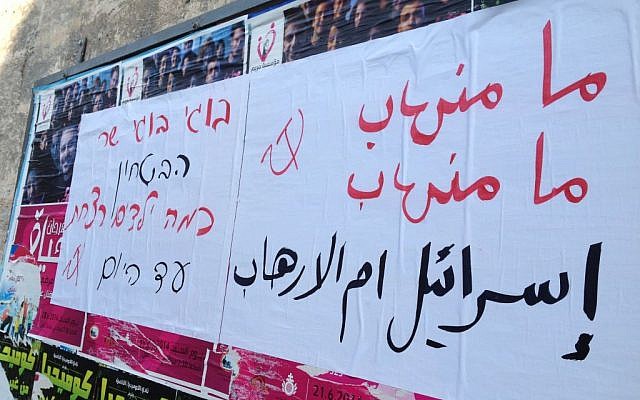 ما منهاب
ما منهاب
إسرائيل ام الارهاب
בוגי בוגי שר
הבטחון
כמה ילדים רצחת
עד היום
مؤسسة مريم
كوميديا
كوميديا